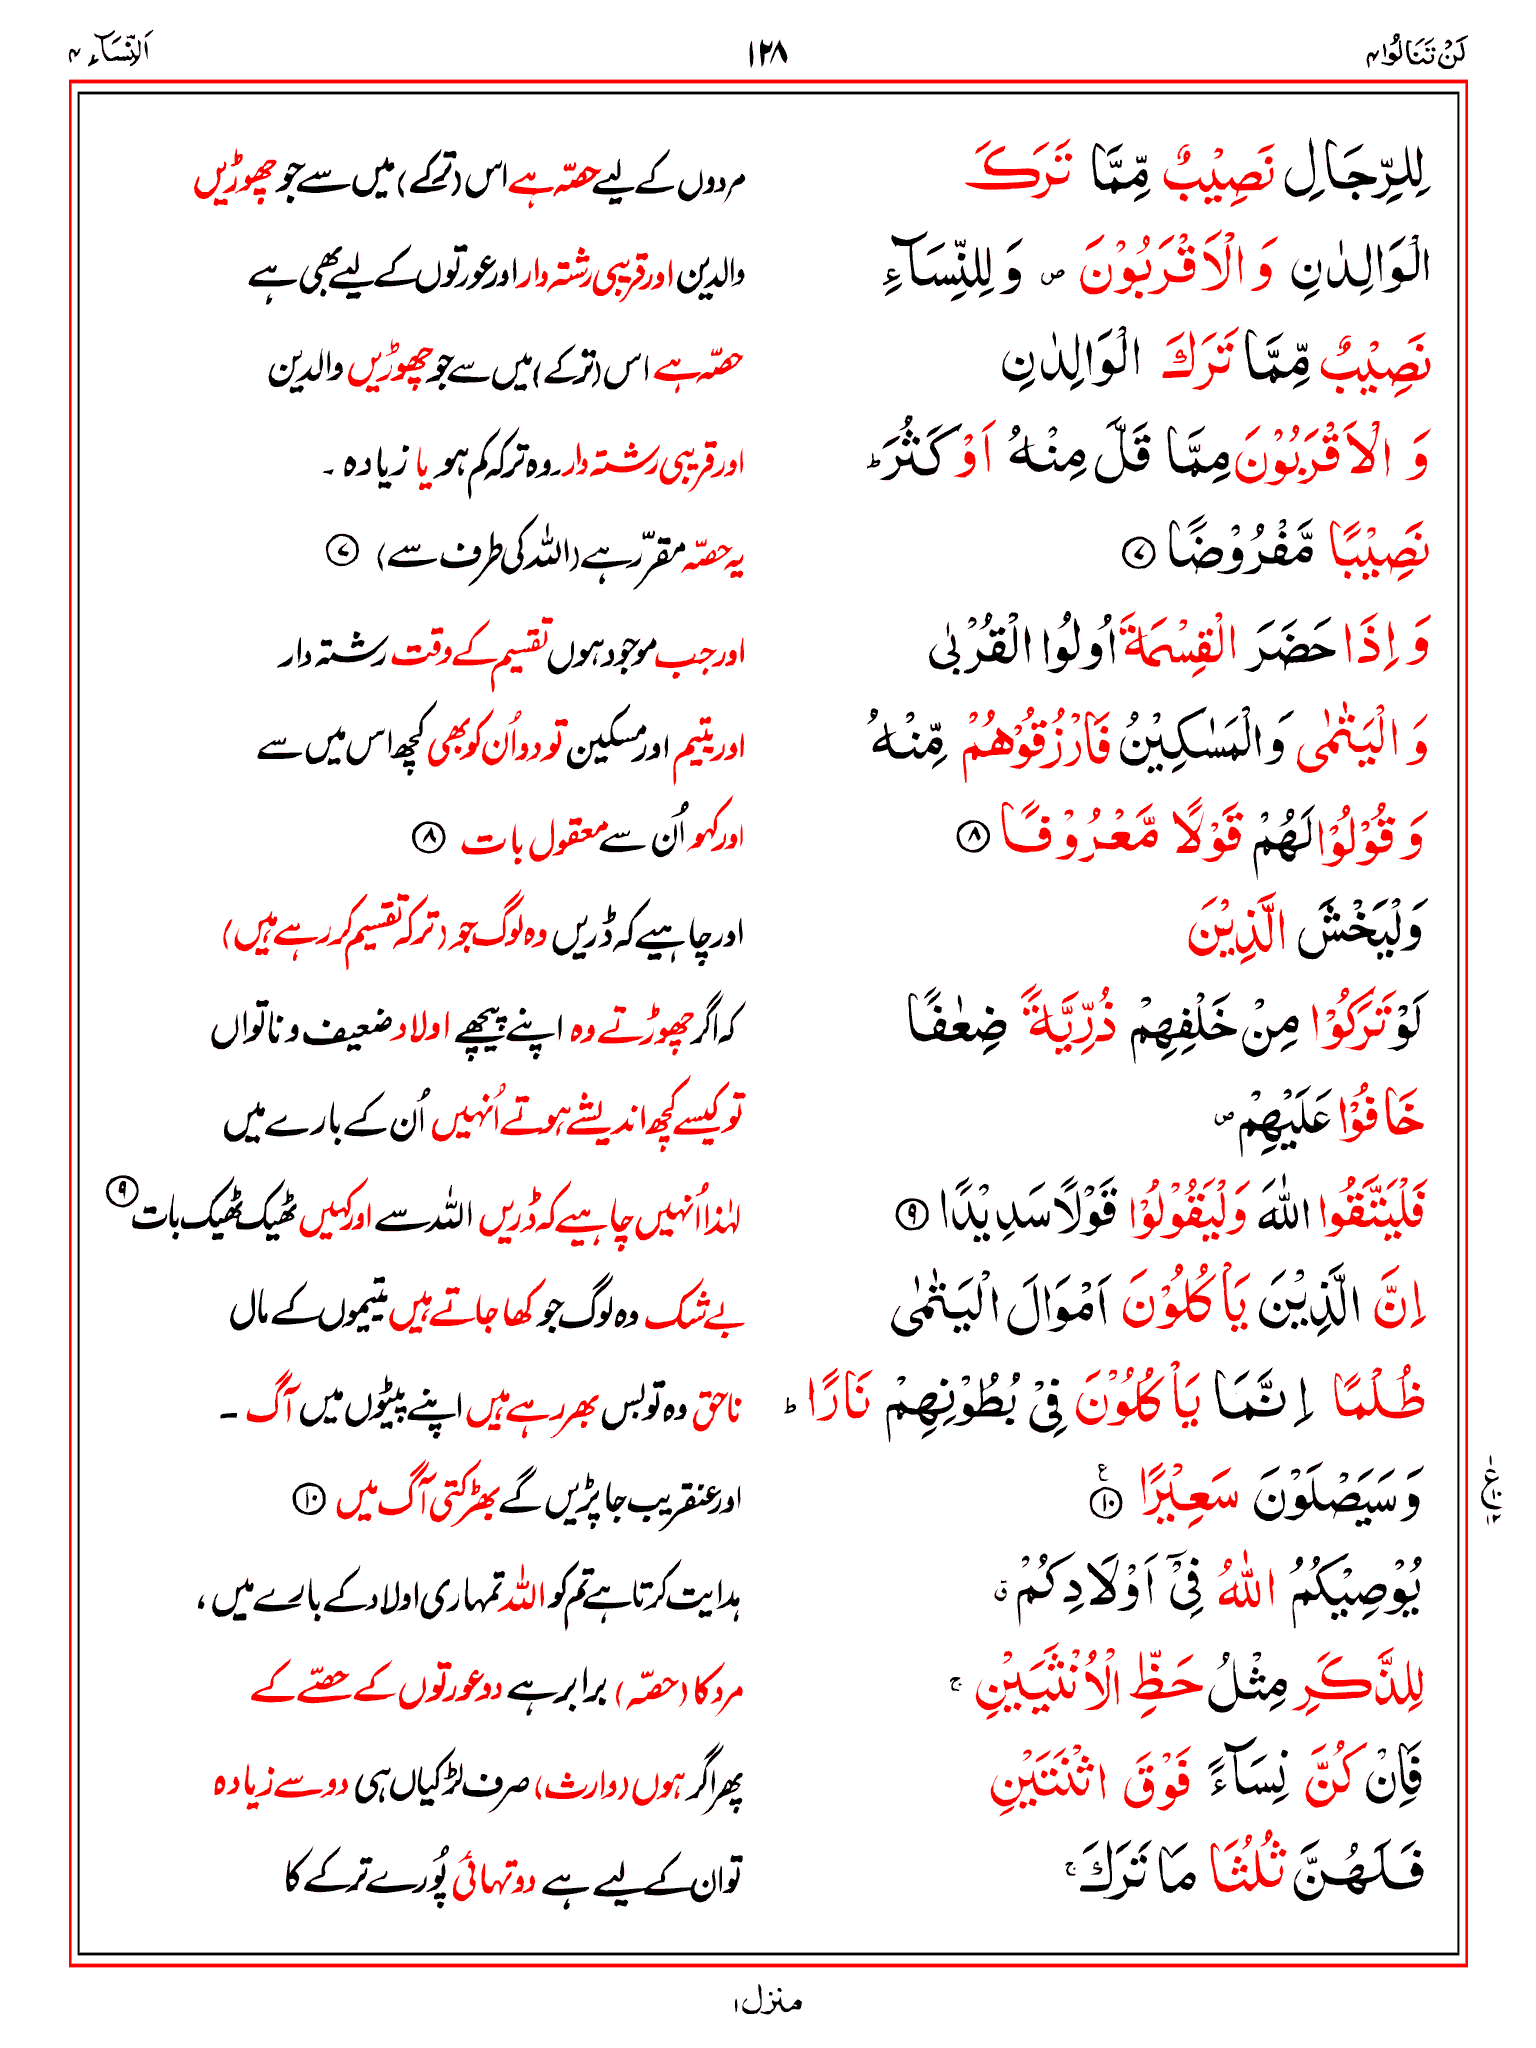 لَنْ تَنَالُوْا ۴ ۱۲۸ اَلنِّسَآء ۴
لِلرِّجَالِ نَصِيْبٌ مِّمَّا تَرَكَ مردوں کے لیے حصّہ ہے اس (ترکے) میں سے جو چھوڑیں
الْوَالِدٰنِ وَ الْاَقْرَبُوْنَ ۪ وَ لِلنِّسَآءِ والدین اور قریبی رشتہ دار اور عورتوں کے لیے بھی ہے
نَصِيْبٌ مِّمَّا تَرَكَ الْوَالِدٰنِ حصّہ ہے اس (ترکے) میں سے جو چھوڑیں والدین
وَ الْاَقْرَبُوْنَ مِمَّا قَلَّ مِنْهُ اَوْ كَثُرَ ؕ اور قریبی رشتہ دار۔ وہ ترکہ کم ہو یا زیادہ ۔
نَصِيْبًا مَّفْرُوْضًا ۷ یہ حصّہ مقرّر ہے (اللہ کی طرف سے) ۷
وَ اِذَا حَضَرَ الْقِسْمَةَ اُولُوا الْقُرْبٰى اور جب موجود ہوں تقسیم کے وقت رشتہ دار
وَ الْيَتٰمٰى وَ الْمَسٰكِيْنُ فَارْزُقُوْهُمْ مِّنْهُ اور یتیم اور مسکین تو دو اُن کو بھی کچھ اس میں سے
وَ قُوْلُوْا لَهُمْ قَوْلًا مَّعْرُوْفًا ۸ اور کہو اُن سے معقول بات ۸
وَلْيَخْشَ الَّذِيْنَ اور چاہیے کہ ڈریں وہ لوگ جو (ترکہ تقسیم کر رہے ہیں)
لَوْ تَرَكُوْا مِنْ خَلْفِهِمْ ذُرِّيَّةً ضِعٰفًا کہ اگر چھوڑتے وہ اپنے پیچھے اولاد ضعیف و ناتواں
خَافُوْا عَلَيْهِمْ ۪ تو کیسے کچھ اندیشے ہوتے اُنہیں اُن کے بارے میں
فَلْيَتَّقُوا اللّٰهَ وَلْيَقُوْلُوْا قَوْلًا سَدِيْدًا ۹ لہٰذا اُنہیں چاہیے کہ ڈریں اللہ سے اور کہیں ٹھیک ٹھیک بات ۹
اِنَّ الَّذِيْنَ يَاْكُلُوْنَ اَمْوَالَ الْيَتٰمٰى بے شک وہ لوگ جو کھا جاتے ہیں یتیموں کے مال
ظُلْمًا اِنَّمَا يَاْكُلُوْنَ فِيْ بُطُوْنِهِمْ نَارًا ؕ ناحق وہ تو بس بھر رہے ہیں اپنے پیٹوں میں آگ ۔
وَ سَيَصْلَوْنَ سَعِيْرًا ۱۰ ع اور عنقریب جا پڑیں گے بھڑکتی آگ میں ۱۰
ع ۱۰ ۱۲
يُوْصِيْكُمُ اللّٰهُ فِيْۤ اَوْلَادِكُمْ ۗ ہدایت کرتا ہے تم کو اللہ تمہاری اولاد کے بارے میں ،
لِلذَّكَرِ مِثْلُ حَظِّ الْاُنْثَيَيْنِ ۚ مرد کا (حصّہ) برابر ہے دو عورتوں کے حصّے کے
فَاِنْ كُنَّ نِسَآءً فَوْقَ اثْنَتَيْنِ پھر اگر ہوں (وارث) صرف لڑکیاں ہی دو سے زیادہ
فَلَهُنَّ ثُلُثَا مَا تَرَكَ ۚ تو ان کے لیے ہے دو تہائی پُورے ترکے کا
منزل ۱